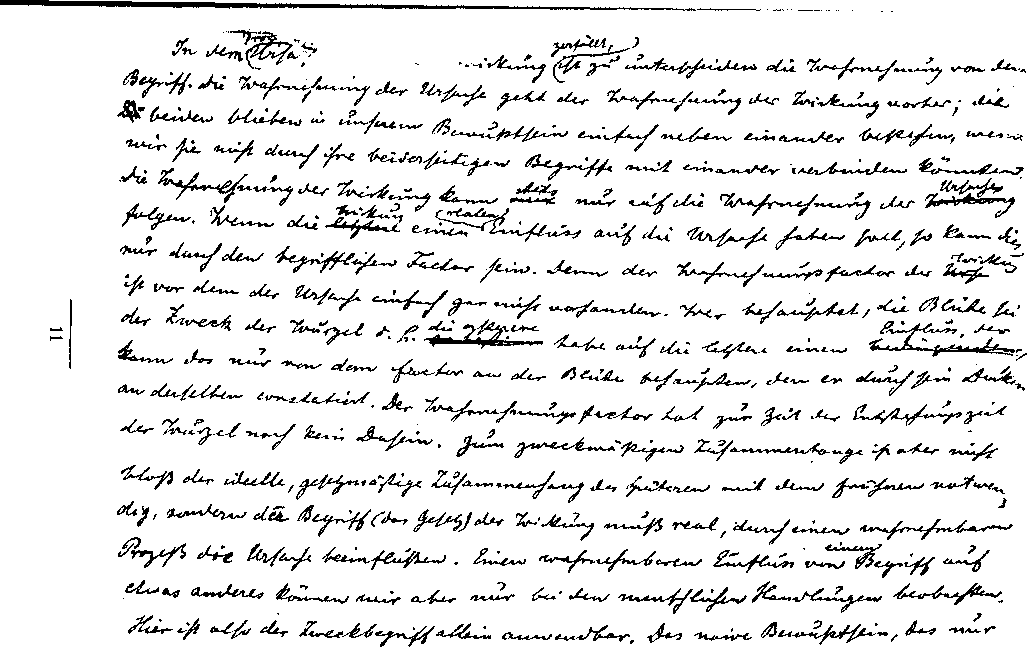 In dem Proz
(Ursa
zerfällt,
wirkung (ist zu unterscheiden die Wahrnehmung von dem
Begriff. Die Wahrnehmung der Ursache geht der Wahrnehmung der Wirkung vorher; die
beiden blieben in unserem Bewußtsein einfach neben einander bestehen, wenn
wir sie nicht durch ihre beiderseitigen Begriffe mit einander verbinden könnten.
Die Wahrnehmung der Wirkung kann stets nur auf die Wahrnehmung der Ursache Wirkung
folgen. Wenn die Wirkung letztere einen (realen) Einfluss auf die Ursache haben soll, so kann dies
nur durch den begrifflichen Factor sein. Denn der Wahrnehmungsfactor der Wirkung Urs
ist vor dem der Ursache einfach gar nicht vorhanden. Wer behauptet, die Blüte sei
der Zweck der Wurzel d. h. die erstere habe auf die letztere einen Einfluss, der
kann das nur von dem Factor an der Blüte behaupten, den er durch sein Denken
an derselben constatiert. Der Wahrnehmungsfactor hat zur Zeit der Entstehungszeit
der Wurzel noch kein Dasein. Zum zweckmäßigen Zusammenhange ist aber nicht
bloß der ideelle, gesetzmäßige Zusammenhang des Späteren mit dem früheren notwen-
dig, sondern der Begriff (das Gesetz) der Wirkung muß real, durch einen wahrnehmbaren
Prozeß die Ursache beeinflußen. Einen wahrnehmbaren Einfluss von einem Begriff auf
etwas anderes können wir aber nur bei den menschlichen Handlungen beobachten.
Hier ist also der Zweckbegriff allein anwendbar. Das naive Bewußtsein, das nur
11